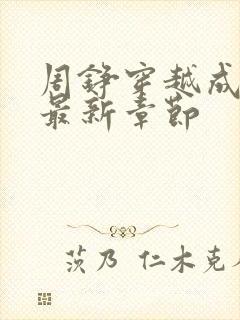 周铮穿越成
最新章节
茨乃 仁木克